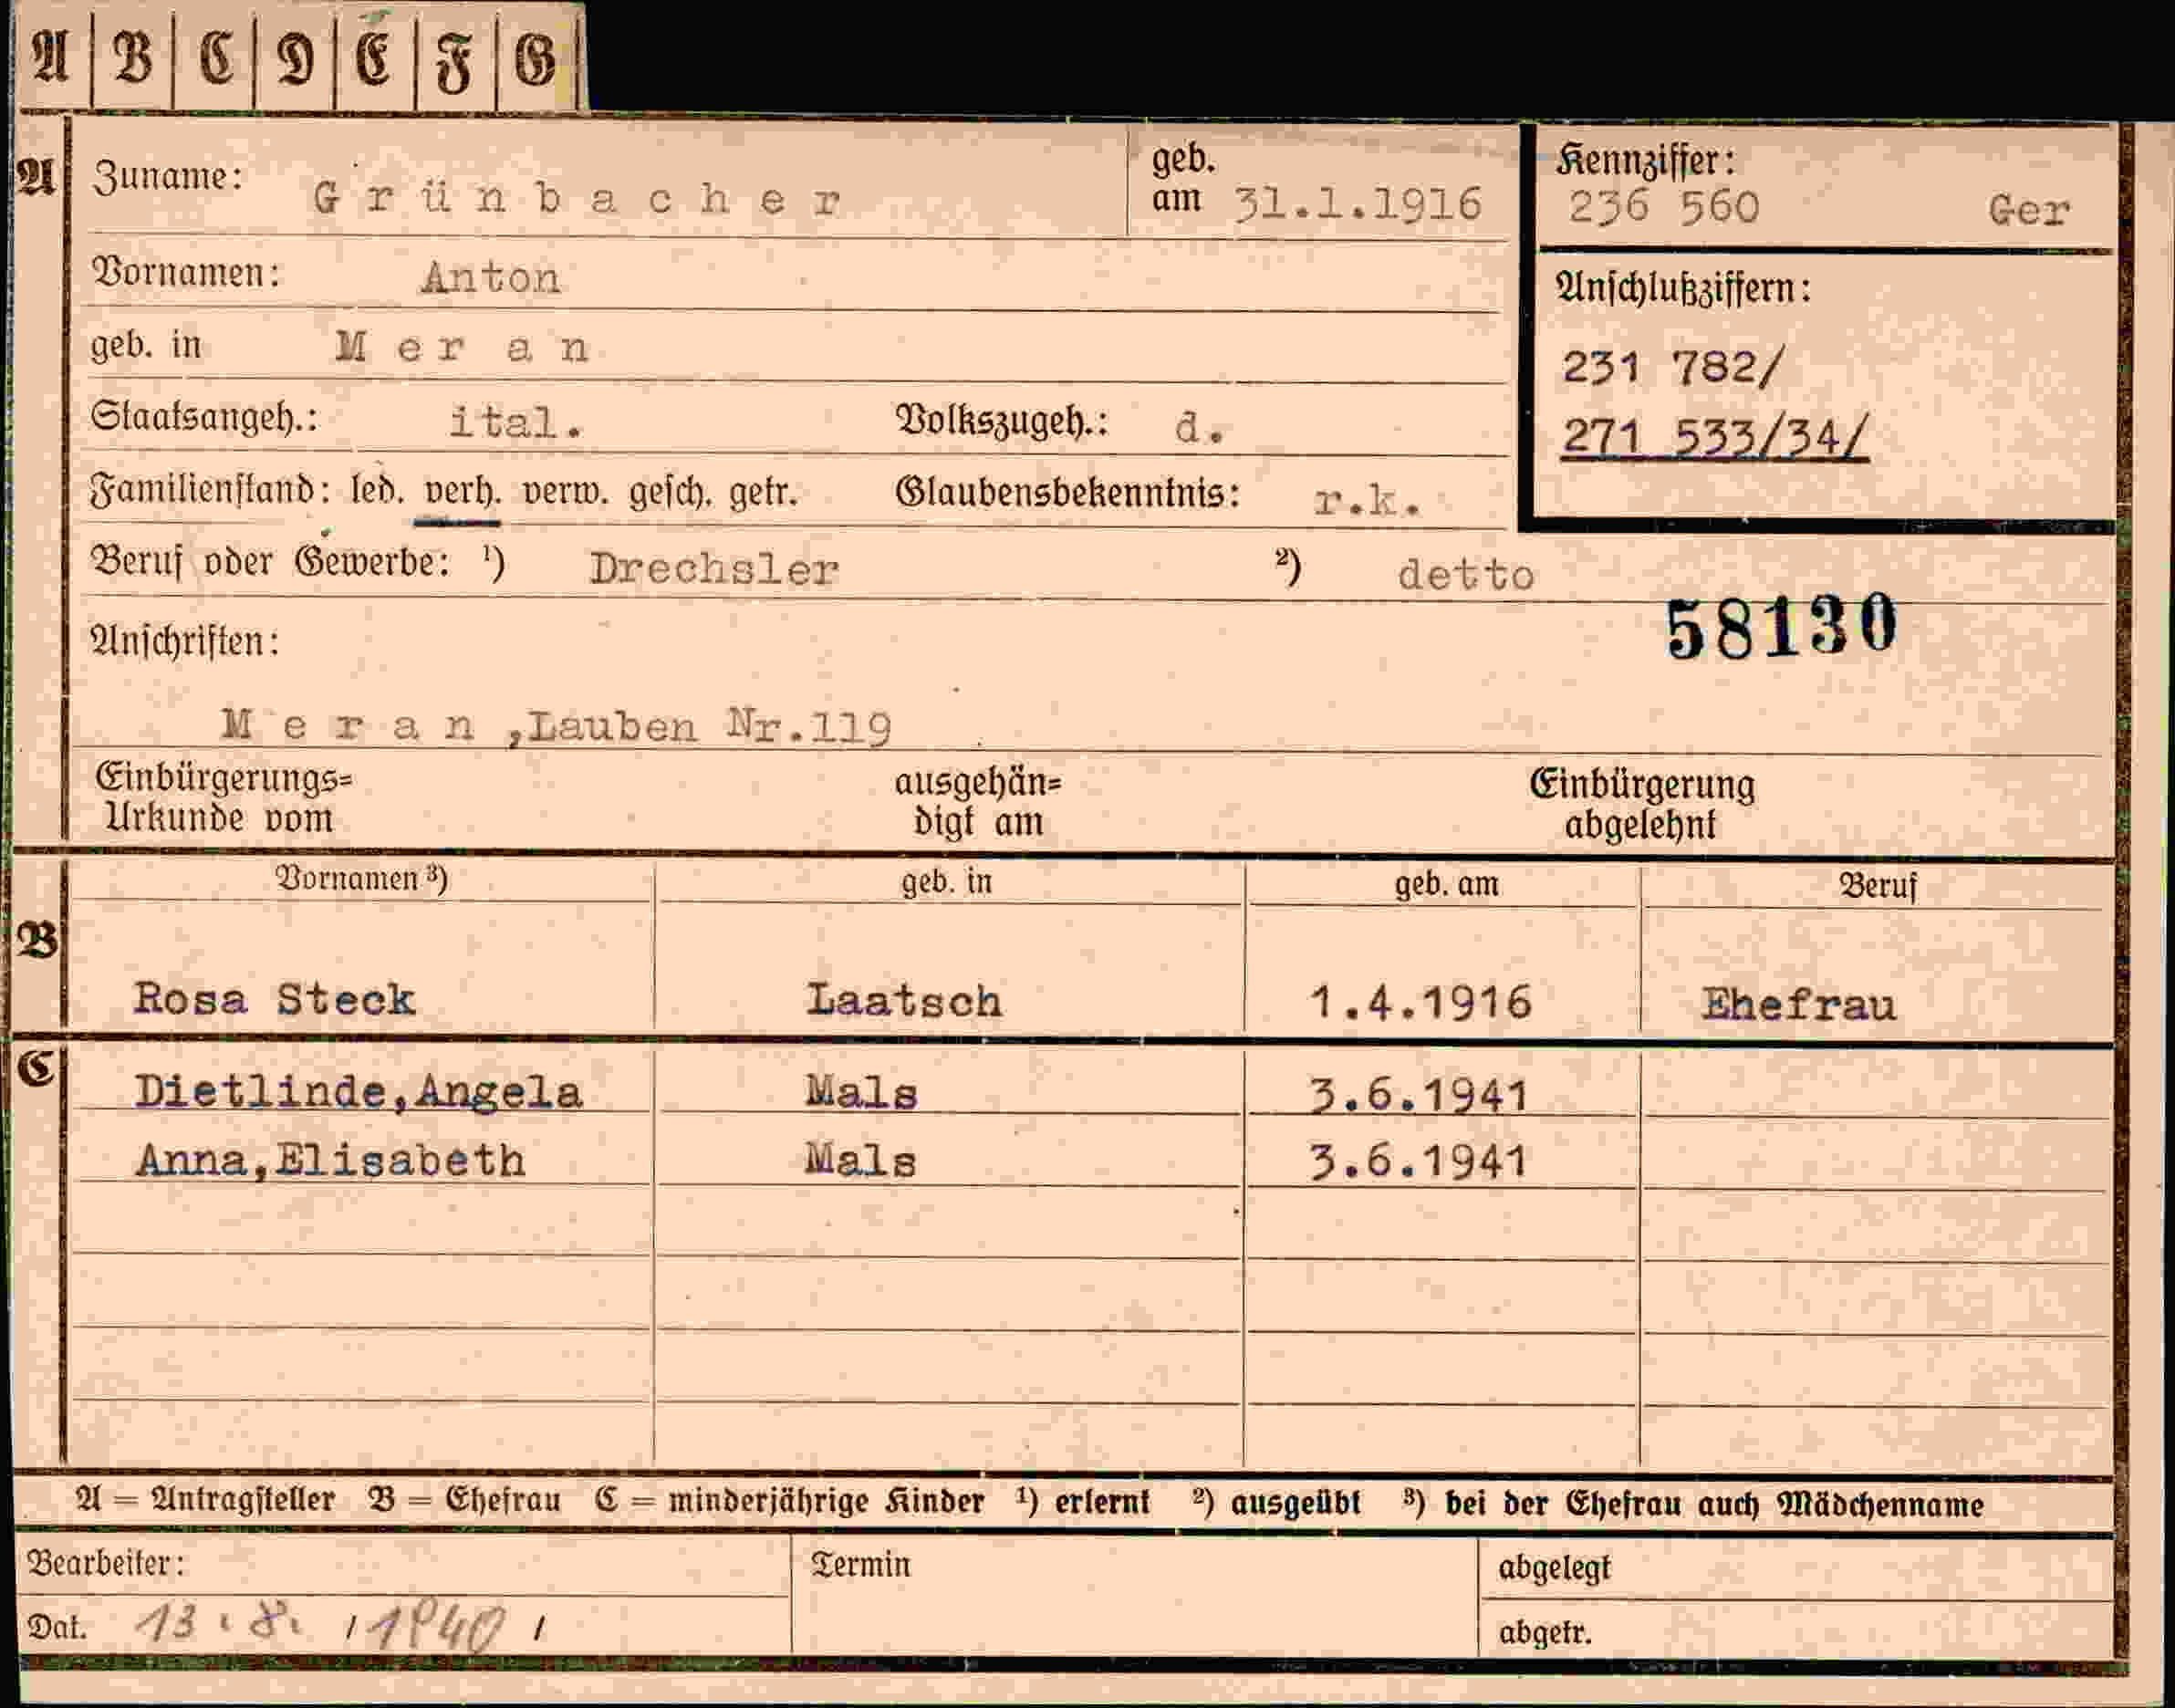 A B C D E F G
A Zuname: Grünbacher geb. am 31.1.1916
Kennziffer:
236 560 Ger
Vornamen: Anton
Anschlußziffern:
geb. in Meran
231 782/
Staatsangeh.: ital. Volkszugeh.: d.
271 533/34/
Familienstand: led. verh. verw. gesch. getr. Glaubensbekenntnis: r.k.
Beruf oder Gewerbe: ¹) Drechsler ²) detto
58130
Anschriften:
Meran ,Lauben Nr.119
Einbürgerungs= ausgehän= Einbürgerung
Urkunde vom digt am abgelehnt
Vornamen ³) geb. in geb. am Beruf
B
Rosa Steck Laatsch 1.4.1916 Ehefrau
C
Dietlinde,Angela Mals 3.6.1941
Anna,Elisabeth Mals 3.6.1941
A = Antragsteller B = Ehefrau C = minderjährige Kinder ¹) erlernt ²) ausgeübt ³) bei der Ehefrau auch Mädchenname
Bearbeiter: Termin abgelegt
Dat. 13.8./1940/ abgetr.